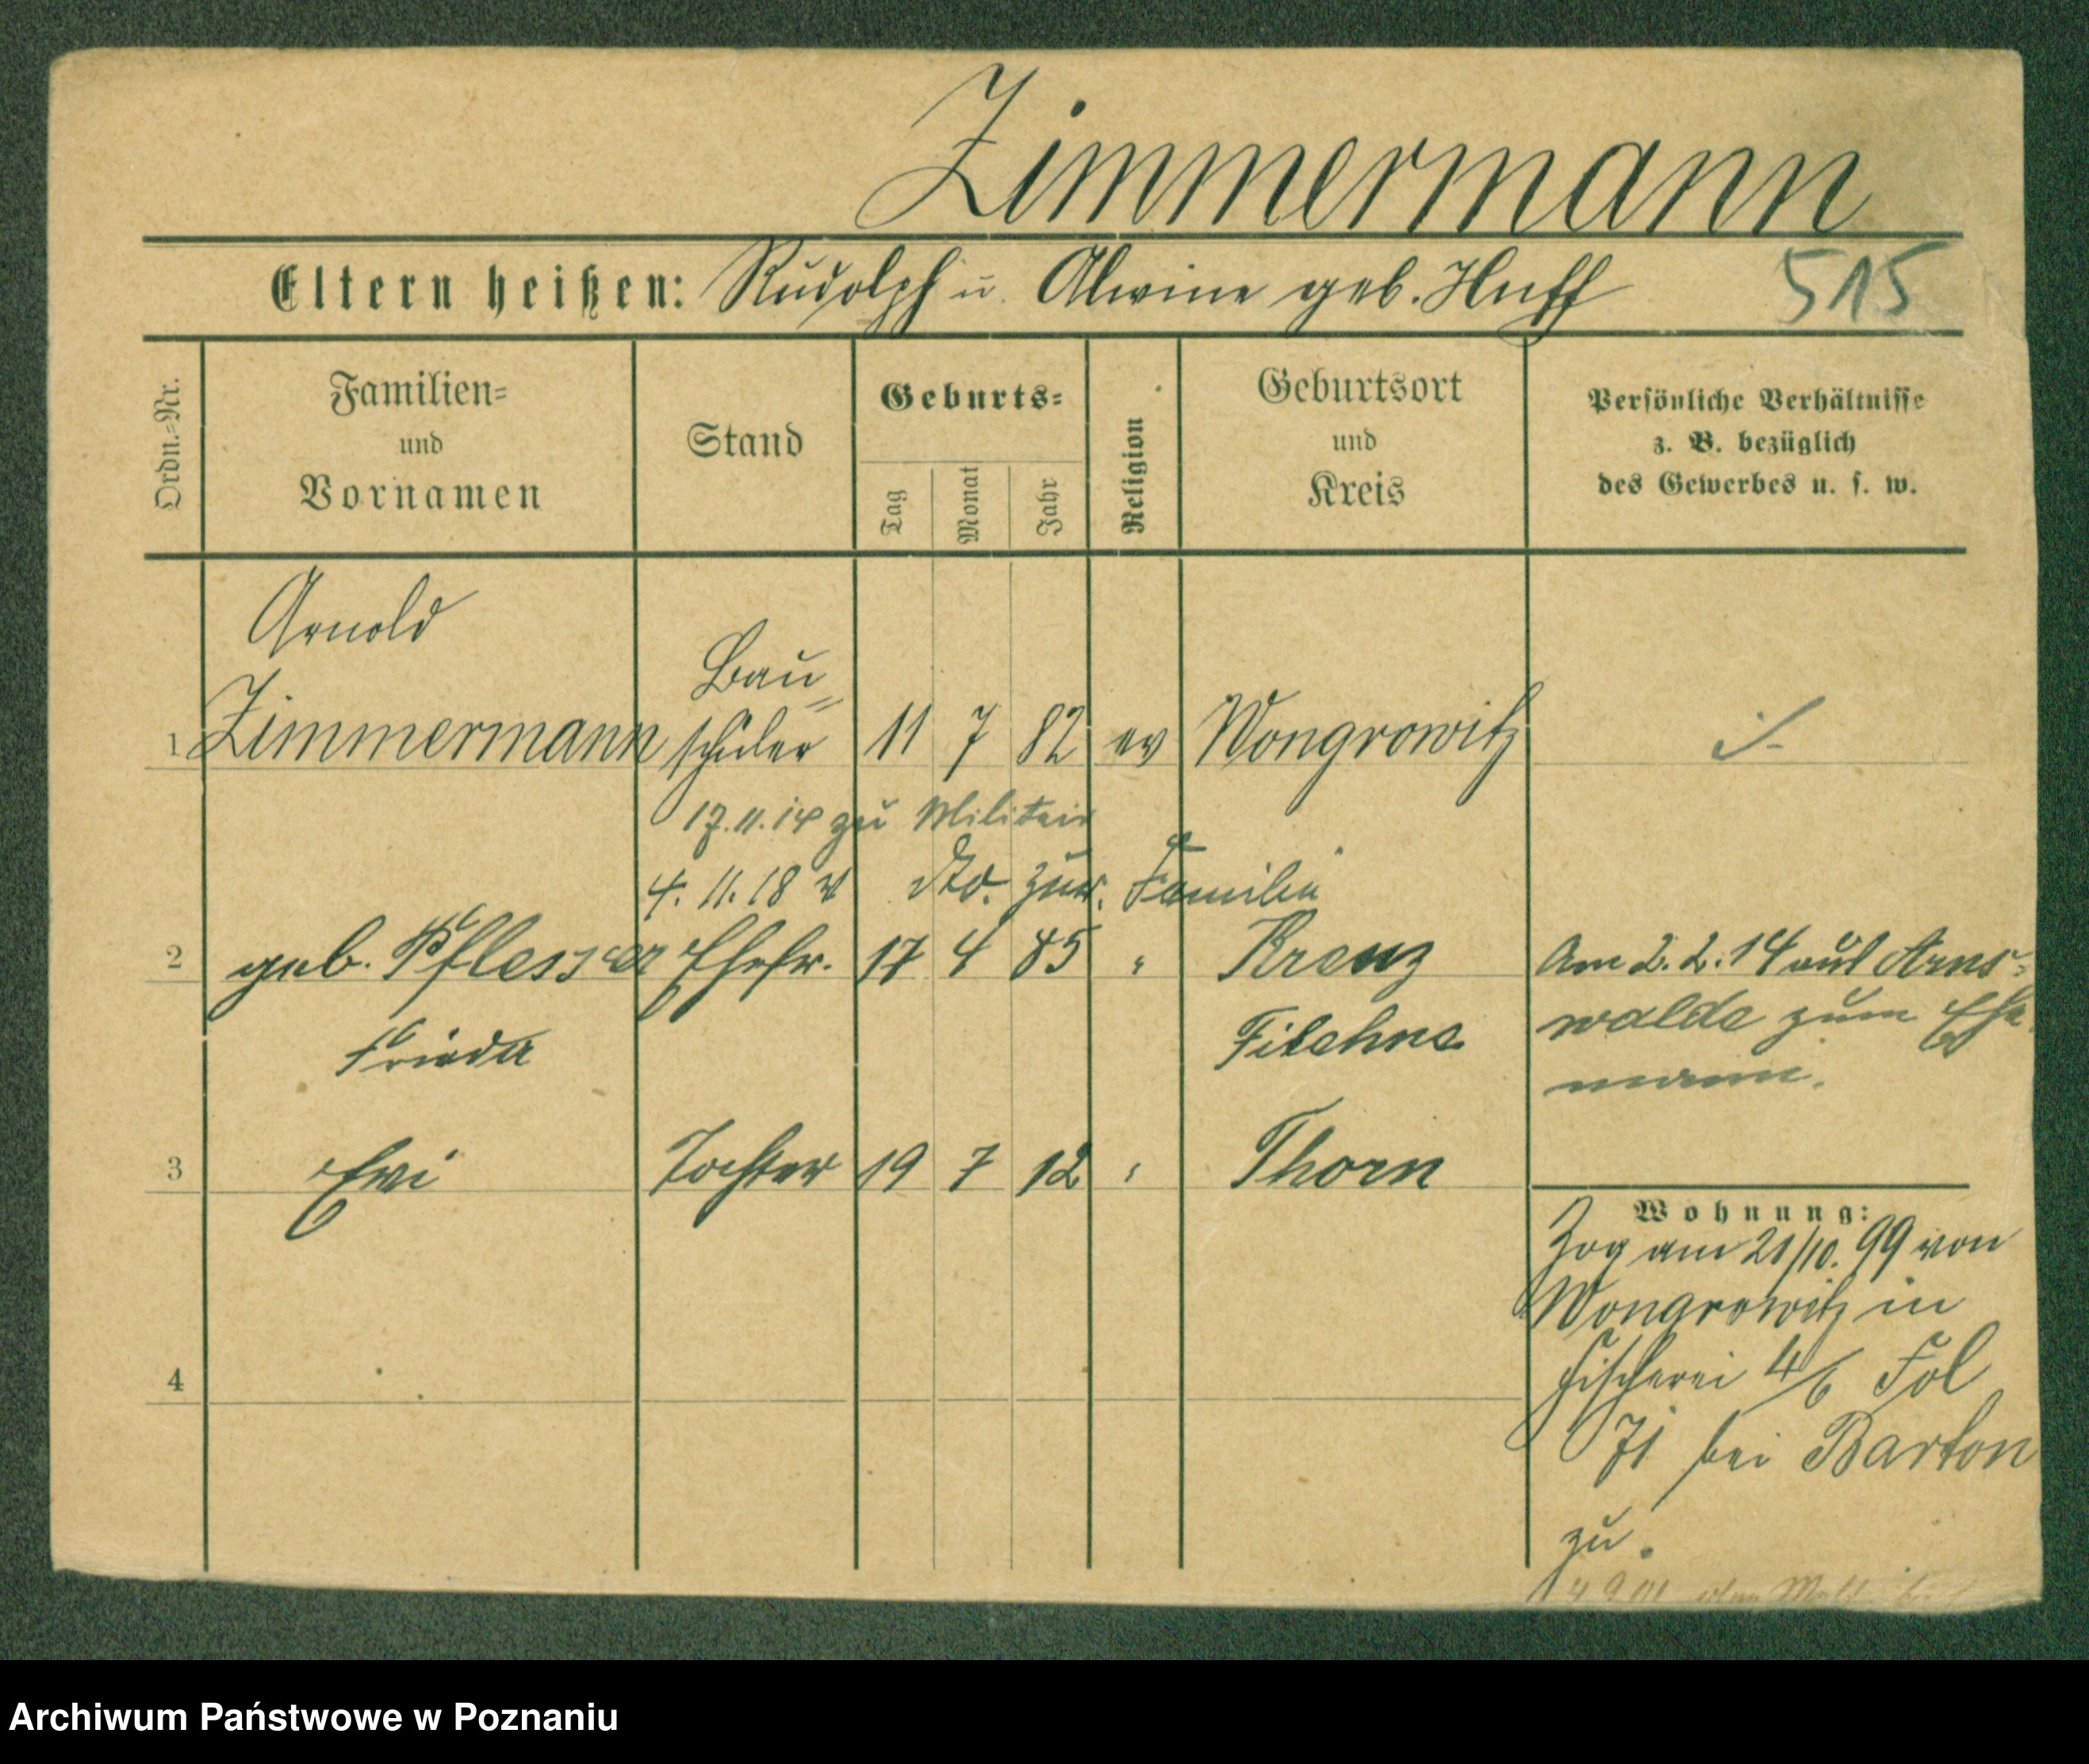 Zimmermann
Eltern heißen: Rudolph u. Alwine geb. Huff 515
Ordn.=Nr.
Familien=
und
Vornamen
Stand
Geburts=
Tag
Monat
Jahr
Religion
Geburtsort
und
Kreis
Persönliche Verhältnisse
z. B. bezüglich
des Gewerbes u. s. w.
Arnold
Bau=
1 Zimmermann schüler 11 7 82 ev Wongrowitz
17.11.14 zu Militair
4.11.18 v dto. zur. Familie
2 geb. Pflesser Ehefr. 17 4 85 " Kreuz
Frieda Filehne
Am 2.2.14 aus Arns=
walde zum Ehe
mann.
3 Evi Tochter 19 7 12 " Thorn
Wohnung:
Zog am 21/10. 99 von
Wongrowitz in
Fischerei 4/6 Fol
71 bei Barton
zu.
4
Archiwum Państwowe w Poznaniu